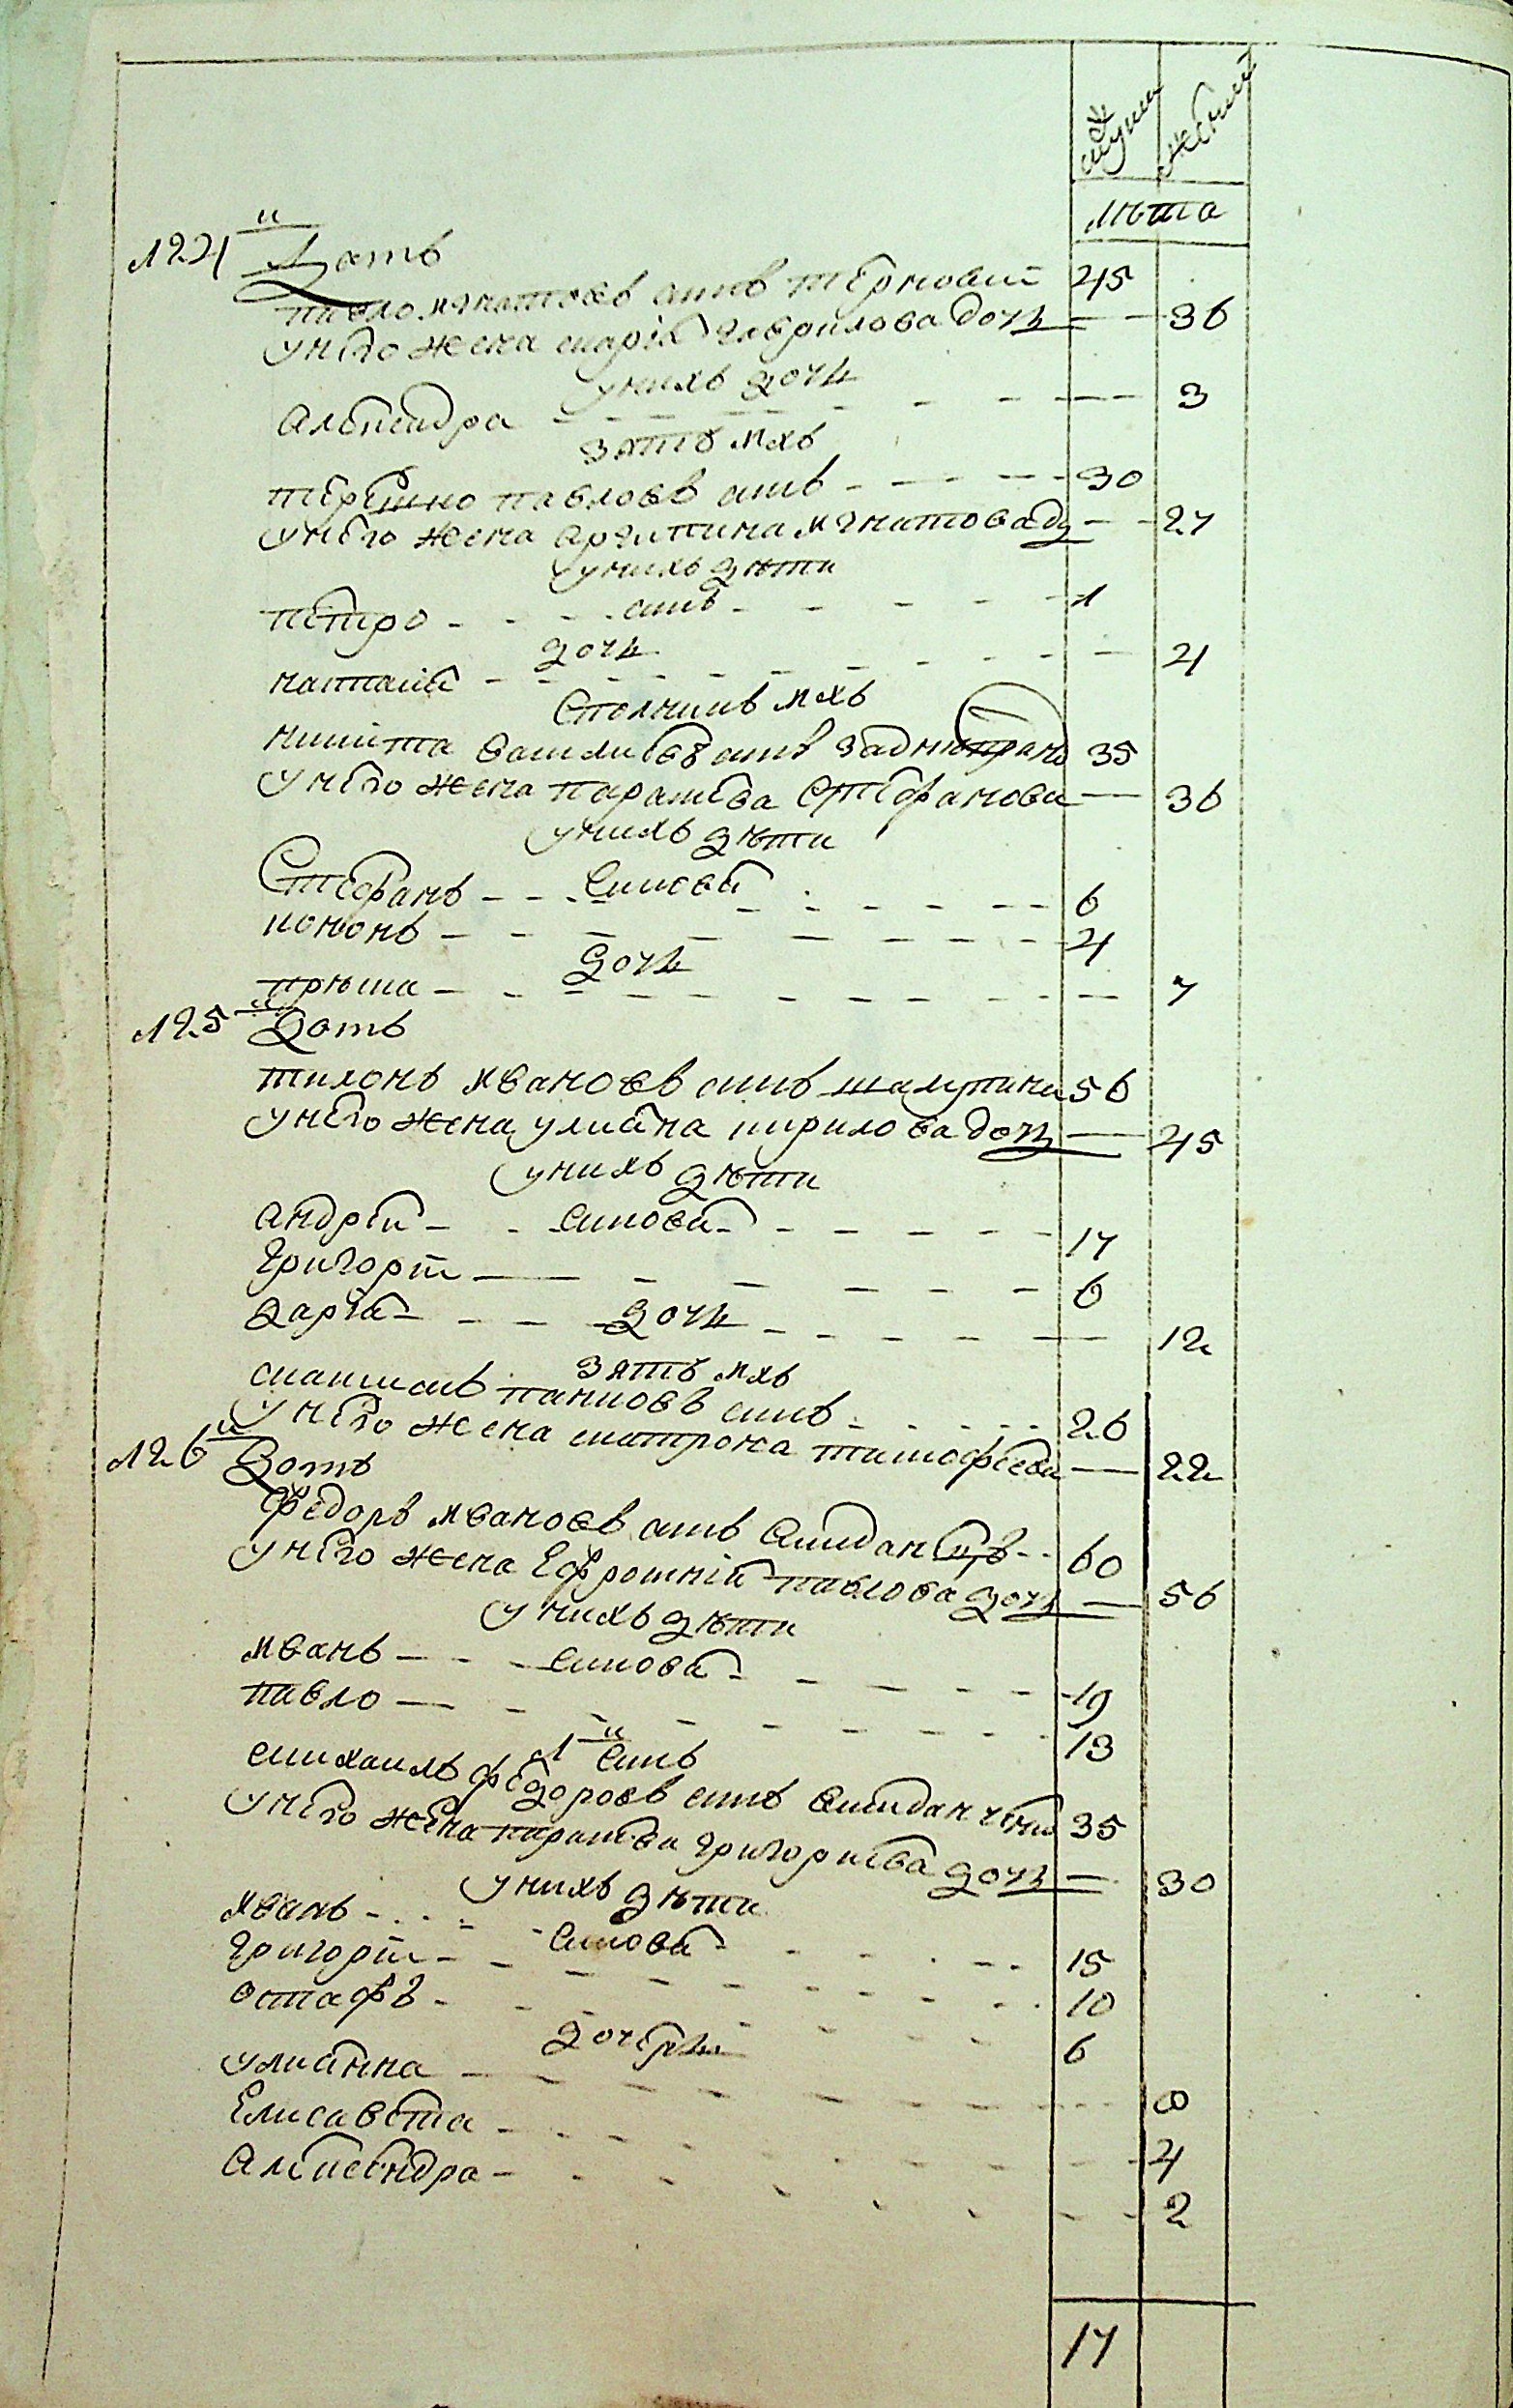 мужеск женский
лѣта
124й Домъ
павло игнатовъ синъ терновий 45
у него жена марія гаврилова дочь 36
у нихъ дочь
Александра 3
зять ихъ
терешко павловъ синъ 30
у него жена игнатова до 27
у нихъ дѣти
петро синъ 1
дочь
наталия 4
Сполникъ ихъ
никита василиевъ синъ 35
у него жена параскева Стефанова 36
у нихъ дѣти
Стефанъ Синови 6
кононъ 4
дочь
приска 7
125й Домъ
тихонъ ивановъ синъ 56
у него жена улияна кирилова дочь 45
у нихъ дѣти
андрей синови 17
григорий 6
дария дочь 12
зять ихъ
максимъ панковъ синъ 26
у него жена матрона тимофеева 22
126й Домъ
Федоръ ивановъ синъ 60
у него жена Ефросинія павлова дочь 56
у нихъ дѣти
иванъ синови 19
павло 13
1й Синъ
михаилъ федоровъ синъ 35
у него жена параскева григориева дочь 30
у нихъ дѣти
иванъ Синови 15
григорий 10
остафѣ 6
дочери
улиянна 8
Елисавета 4
Александра 2
17